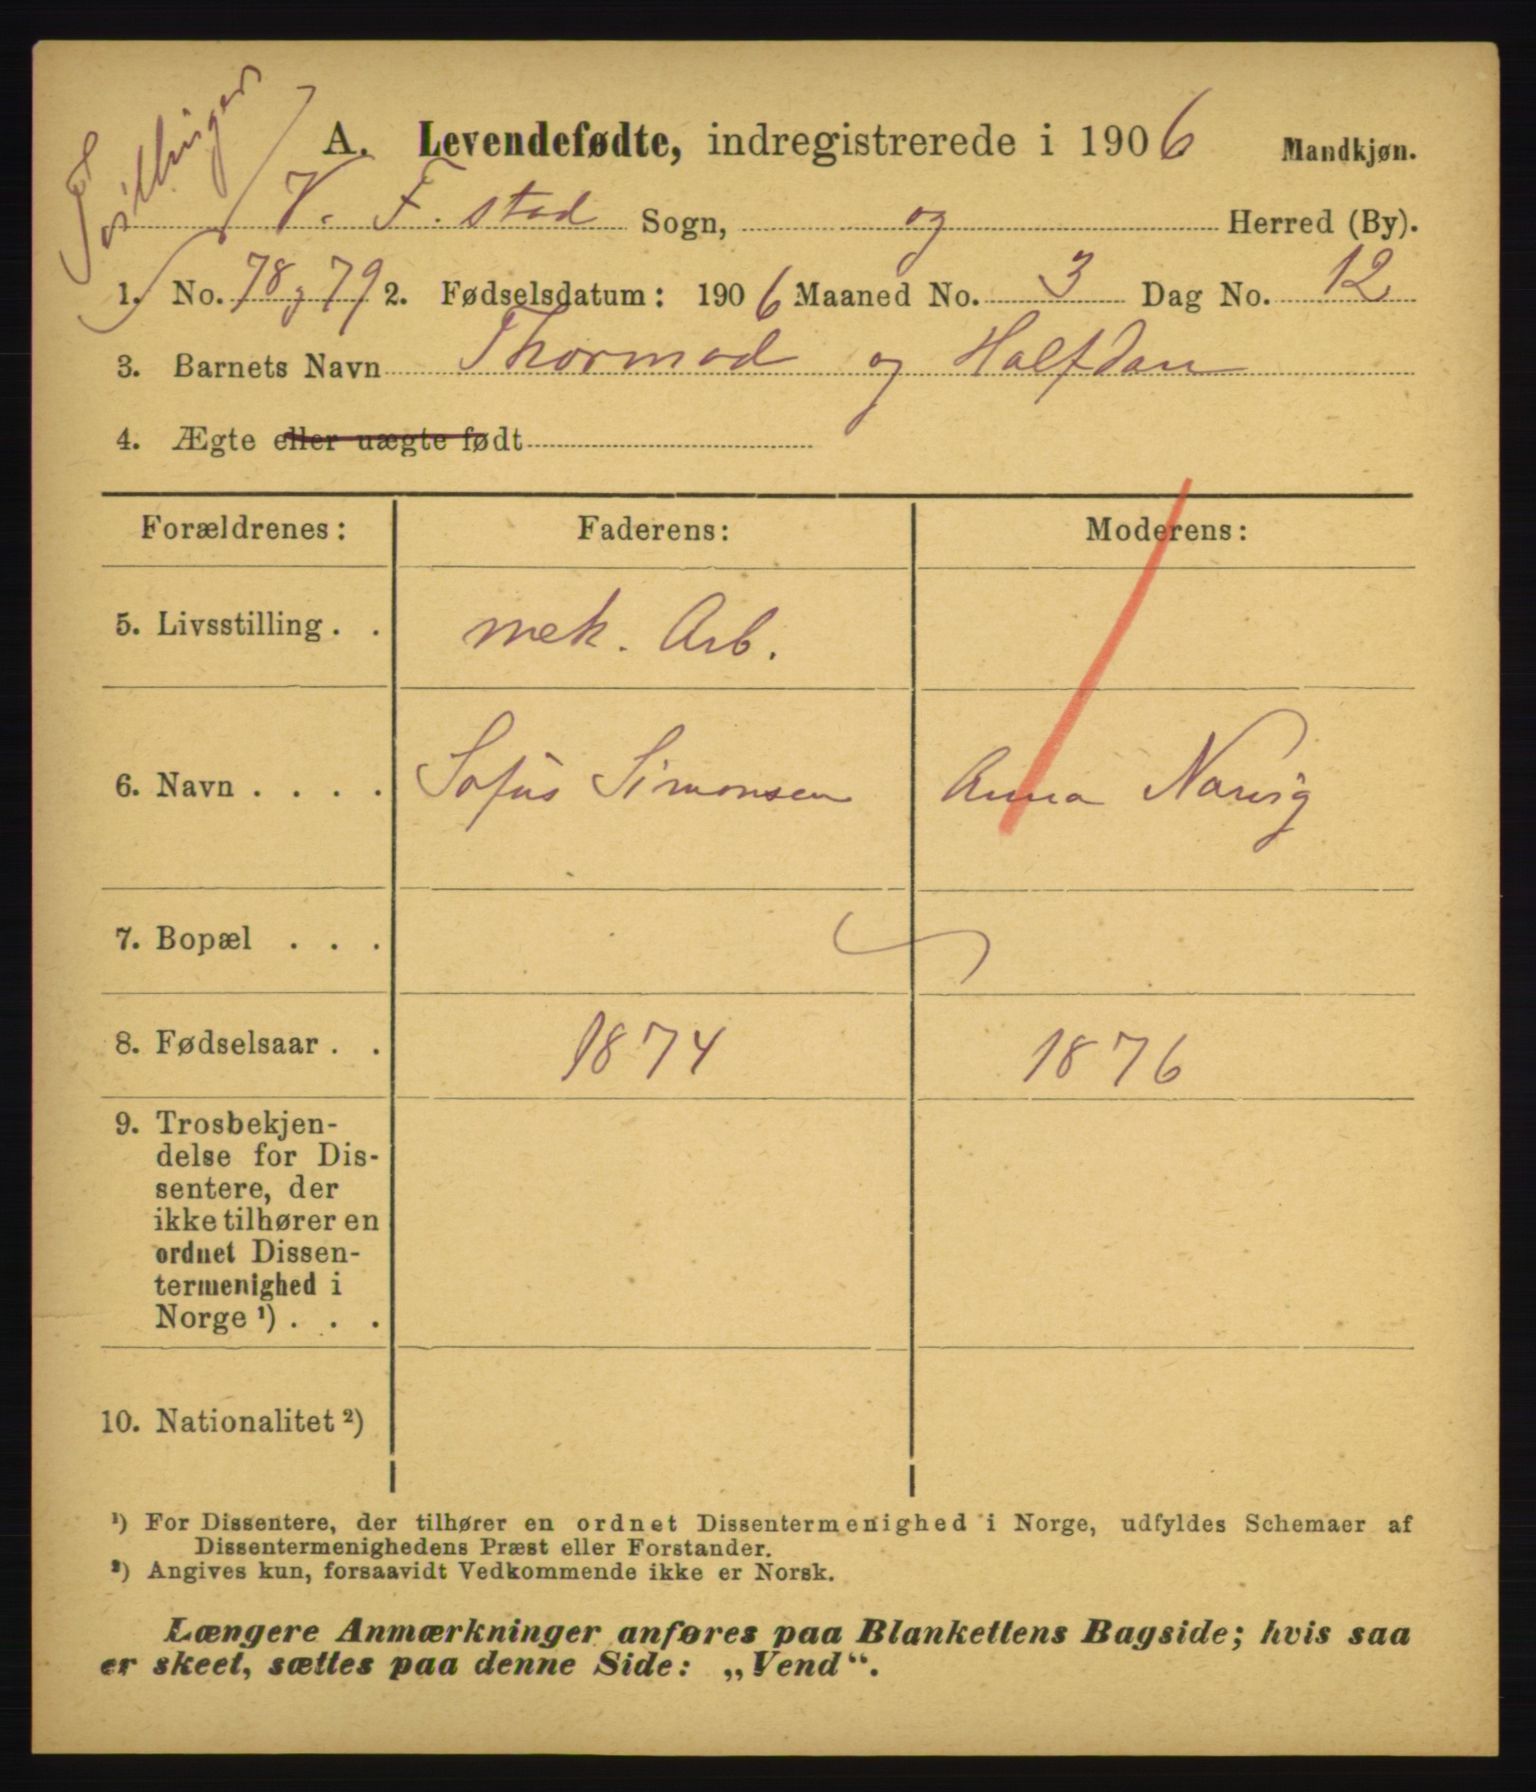 Tvillinger
A. Levendefødte, indregistrerede i 1906 Mandkjøn.
V. F. stad Sogn, og Herred (By).
1. No. 78 og 79 2. Fødselsdatum: 1906 Maaned No. 3 Dag No. 12
3. Barnets Navn Thormod og Halfdan
4. Ægte eller uægte født
Forældrenes: Faderens: Moderens:
5. Livsstilling . . mek. Arb.
6. Navn . . . . Sofus Simonsen Anna Narvig
7. Bopæl . . .
8. Fødselsaar . . 1874 1876
9. Trosbekjen-
delse for Dis-
sentere, der
ikke tilhører en
ordnet Dissen-
termenighed i
Norge ¹) . . .
10. Nationalitet ²)
¹) For Dissentere, der tilhører en ordnet Dissentermenighed i Norge, udfyldes Schemaer af
Dissentermenighedens Præst eller Forstander.
²) Angives kun, forsaavidt Vedkommende ikke er Norsk.
Længere Anmærkninger anføres paa Blankettens Bagside; hvis saa
er skeet, sættes paa denne Side: „Vend“.